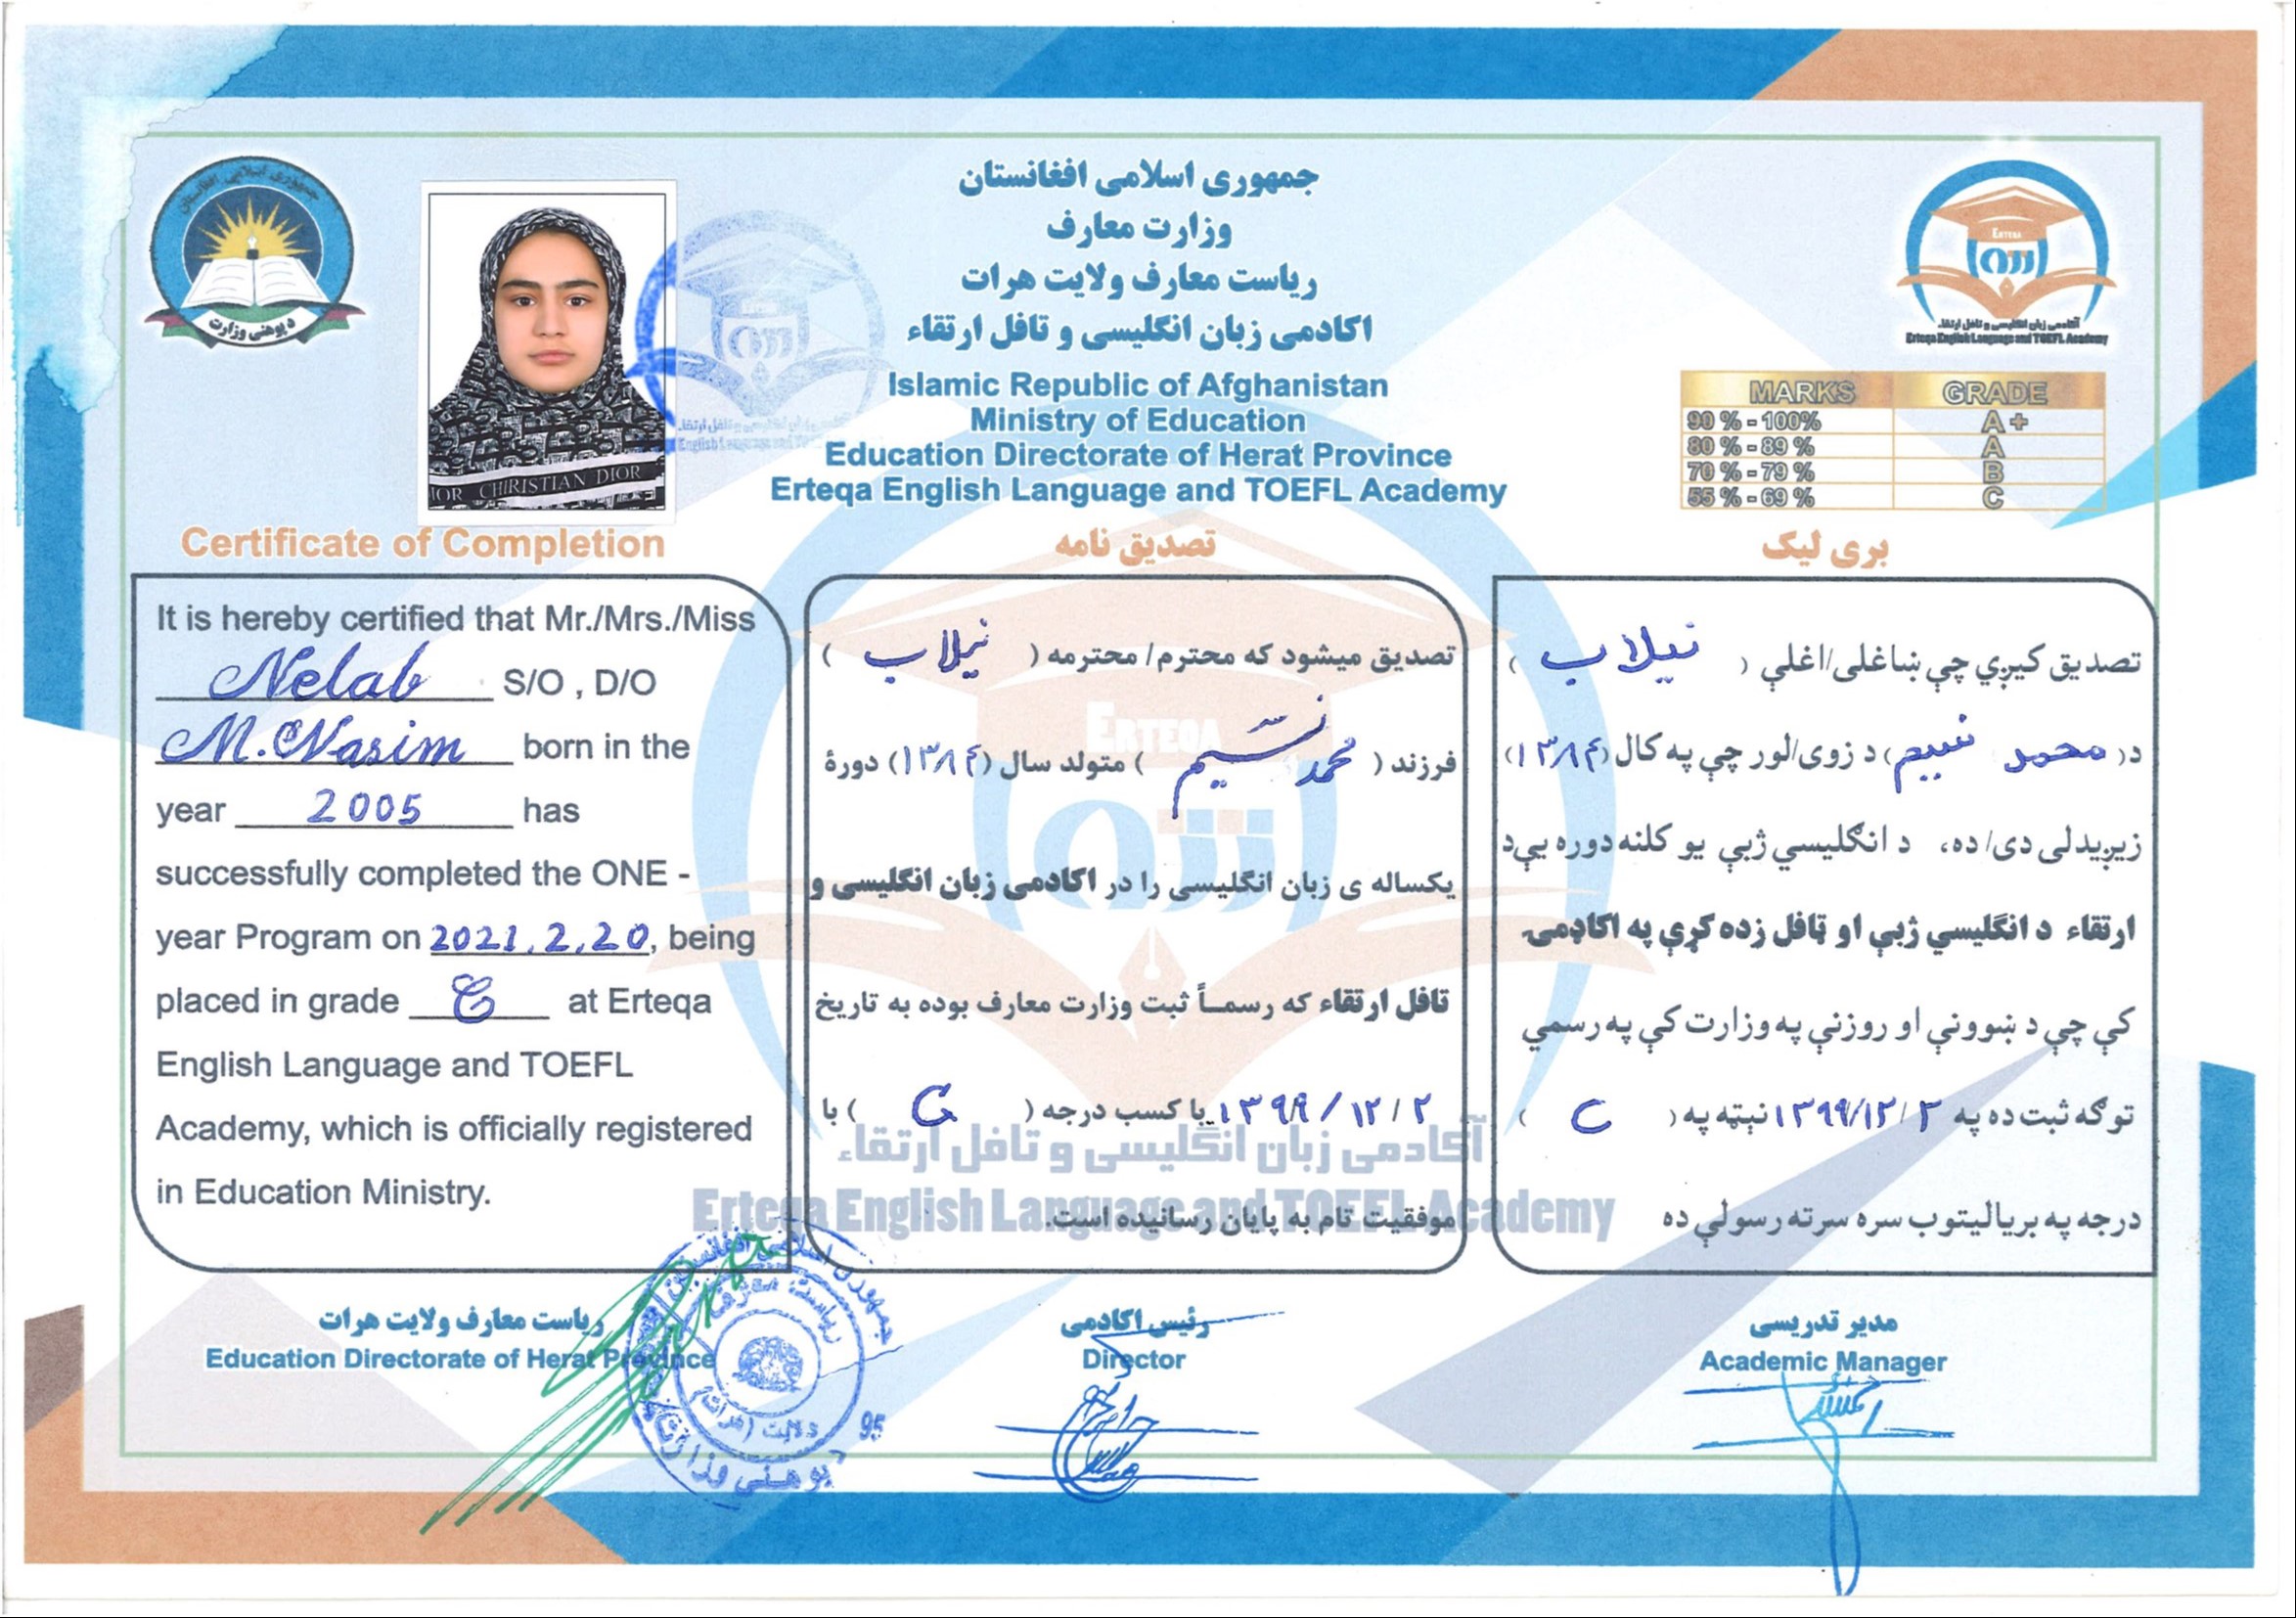 جمهوری اسلامی افغانستان
د پوهنی وزارت
جمهوری اسلامی افغانستان
وزارت معارف
ریاست معارف ولایت هرات
اکادمی زبان انگلیسی و تافل ارتقاء
Islamic Republic of Afghanistan
Ministry of Education
Education Directorate of Herat Province
Erteqa English Language and TOEFL Academy
ERTEQA
آکادمی زبان انگلیسی و تافل ارتقاء
Erteqa English Language and TOEFL Academy
MARKS GRADE
90 % - 100% A+
80 % - 89 % A
70 % - 79 % B
55 % - 69 % C
IOR CHIRISTIAN DIOR
Certificate of Completion
It is hereby certified that Mr./Mrs./Miss
Nelab S/O , D/O
M.Nasim born in the
year 2005 has
successfully completed the ONE -
year Program on 2021.2.20, being
placed in grade C at Erteqa
English Language and TOEFL
Academy, which is officially registered
in Education Ministry.
تصدیق نامه
تصدیق میشود که محترم/ محترمه ( نیلاب )
فرزند ( محمد نسیم ) متولد سال (۱۳۸۴) دورۀ
یکساله ی زبان انگلیسی را در اکادمی زبان انگلیسی و
تافل ارتقاء که رسمـاً ثبت وزارت معارف بوده به تاریخ
۱۳۹۹/۱۲/۲ با کسب درجه ( C ) با
موفقیت تام به پایان رسانیده است.
بری لیک
تصدیق کیږي چې ښاغلی/اغلې ( نیلاب )
د( محمد نسیم) د زوی/لور چې په کال (۱۳۸۴)
زیږیدلی دی/ ده، د انګلیسي ژبې یو کلنه دوره یې د
ارتقاء د انگلیسي ژبې او ټافل زده کړې په اکاډمۍ
کې چې د ښوونې او روزنې په وزارت کې په رسمي
توګه ثبت ده په ۱۳۹۹/۱۲/۲ نېټه په ( C )
درجه په بریالیتوب سره سرته رسولې ده
ERTEQA
آکادمی زبان انگلیسی و تافل ارتقاء
Erteqa English Language and TOEFL Academy
ریاست معارف ولایت هرات
Education Directorate of Herat Province
رئیس اکادمی
Director
مدیر تدریسی
Academic Manager
95